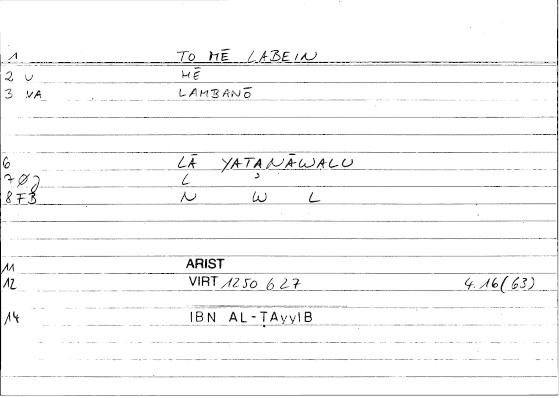 1 TO MĒ LABEIN
2 U MĒ
3 VA LAMBANŌ
6 LĀ YATANĀWALU
L ʾ
8 FB N W L
11 ARIST
12 VIRT 1250 b 27 4.16(63)
14 IBN AL-ṬAyyIB